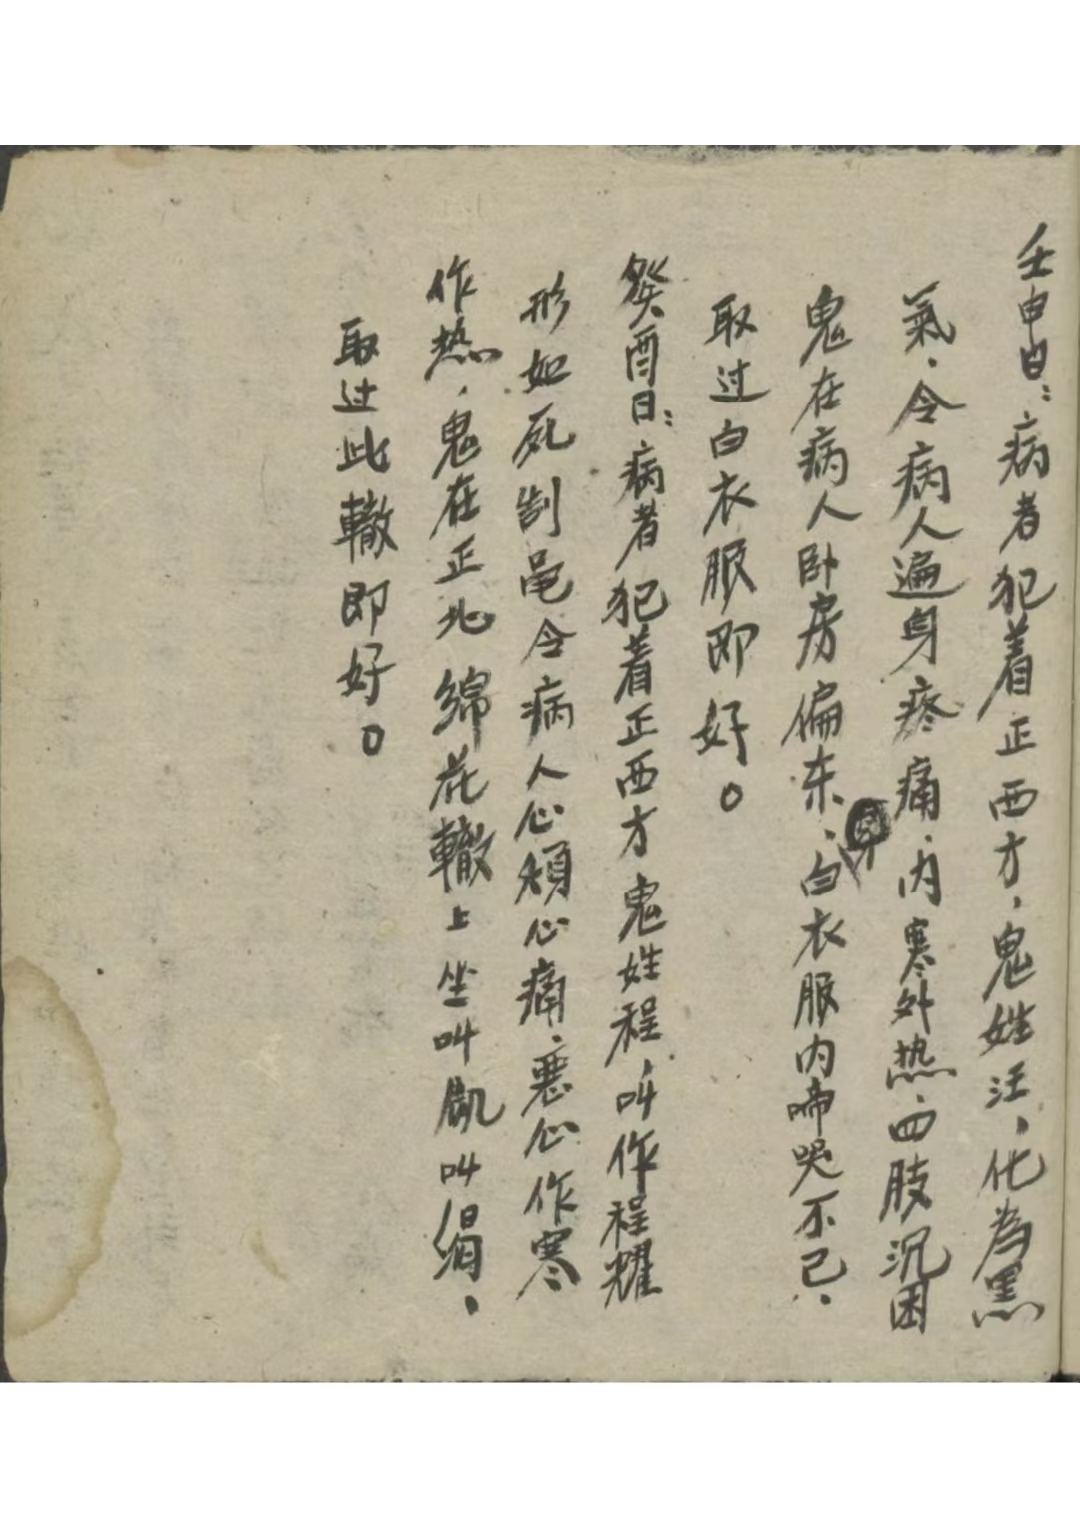 壬申日：病者犯着正西方，鬼姓汪，化為黑
氣，令病人遍身疼痛，内寒外热，四肢沉困
鬼在病人卧房偏东，白衣服内啼哭不已，
取过白衣服即好。
癸酉日：病者犯着正西方鬼姓程，叫作程耀
形如死刮邑令病人心煩心痛，悪心作寒
作热，鬼在正北綿花轍上坐叫飢叫
取过此轍即好。